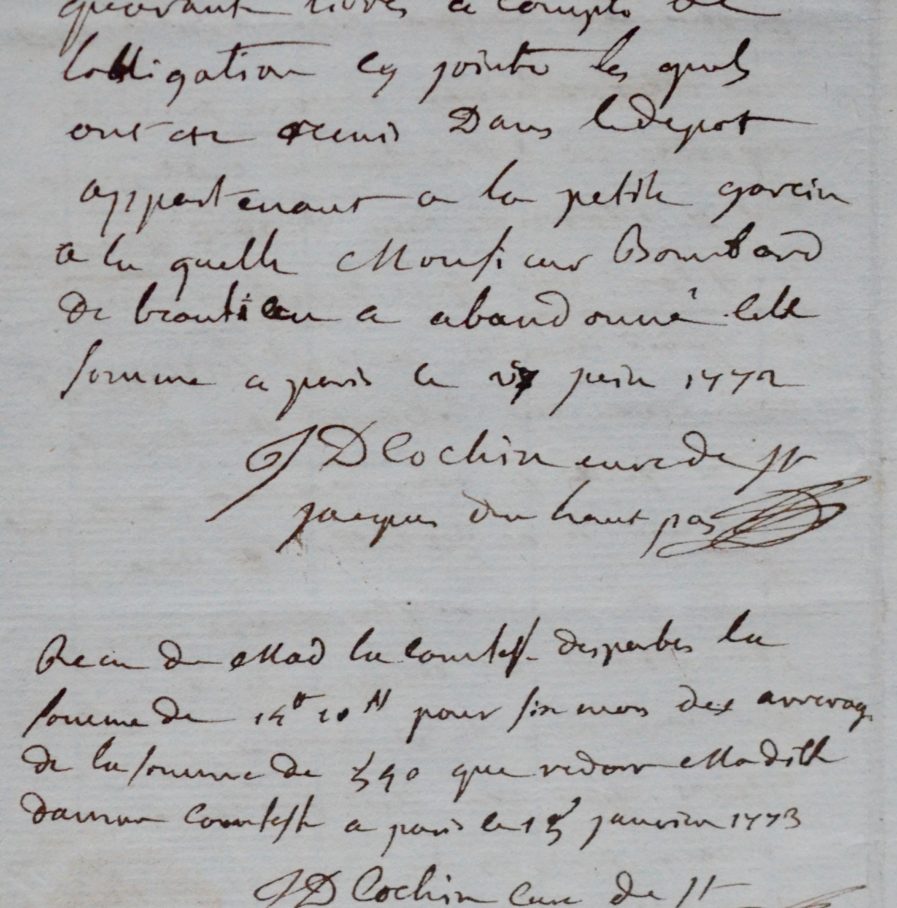 quarant livres a compte de
lobligation cy jointe les quels
ont ete remis Dans le depot
appartenant a la petite garcin
a la quelle Monsieur Bombard
De beautieu a abandonné cette
somme a paris le 27 juin 1772
JD Cochin cure de St
jacques du haut pas
Recu de Mad la comtesse desparbes la
somme de 14tt 10s pour six mois des arrerag
de la somme de 590 que redoit Maditte
dame comtesse a paris le 15 janvier 1773
JD Cochin cure de St